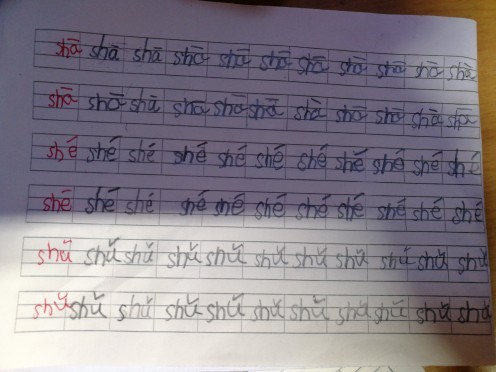 shā shā shā shā shā shā shā shā shā shā shā
shā shā shā shā shā shā shā shā shā shā shā
shé shé shé shé shé shé shé shé shé shé shé
shé shé shé shé shé shé shé shé shé shé shé
shǔ shǔ shǔ shǔ shǔ shǔ shǔ shǔ shǔ shǔ shǔ
shǔ shǔ shǔ shǔ shǔ shǔ shǔ shǔ shǔ shǔ shǔ